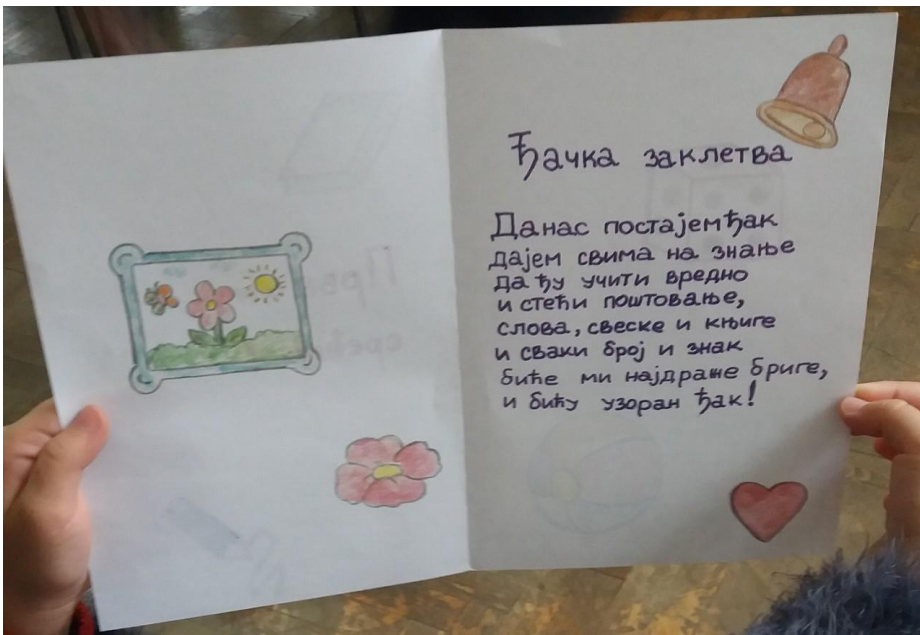 Ђачка заклетва
Данас постајем ђак
дајем свима на знање
да ћу учити вредно
и стећи поштовање,
слова, свеске и књиге
и сваки број и знак
биће ми најдраже бриге,
и бићу узоран ђак!